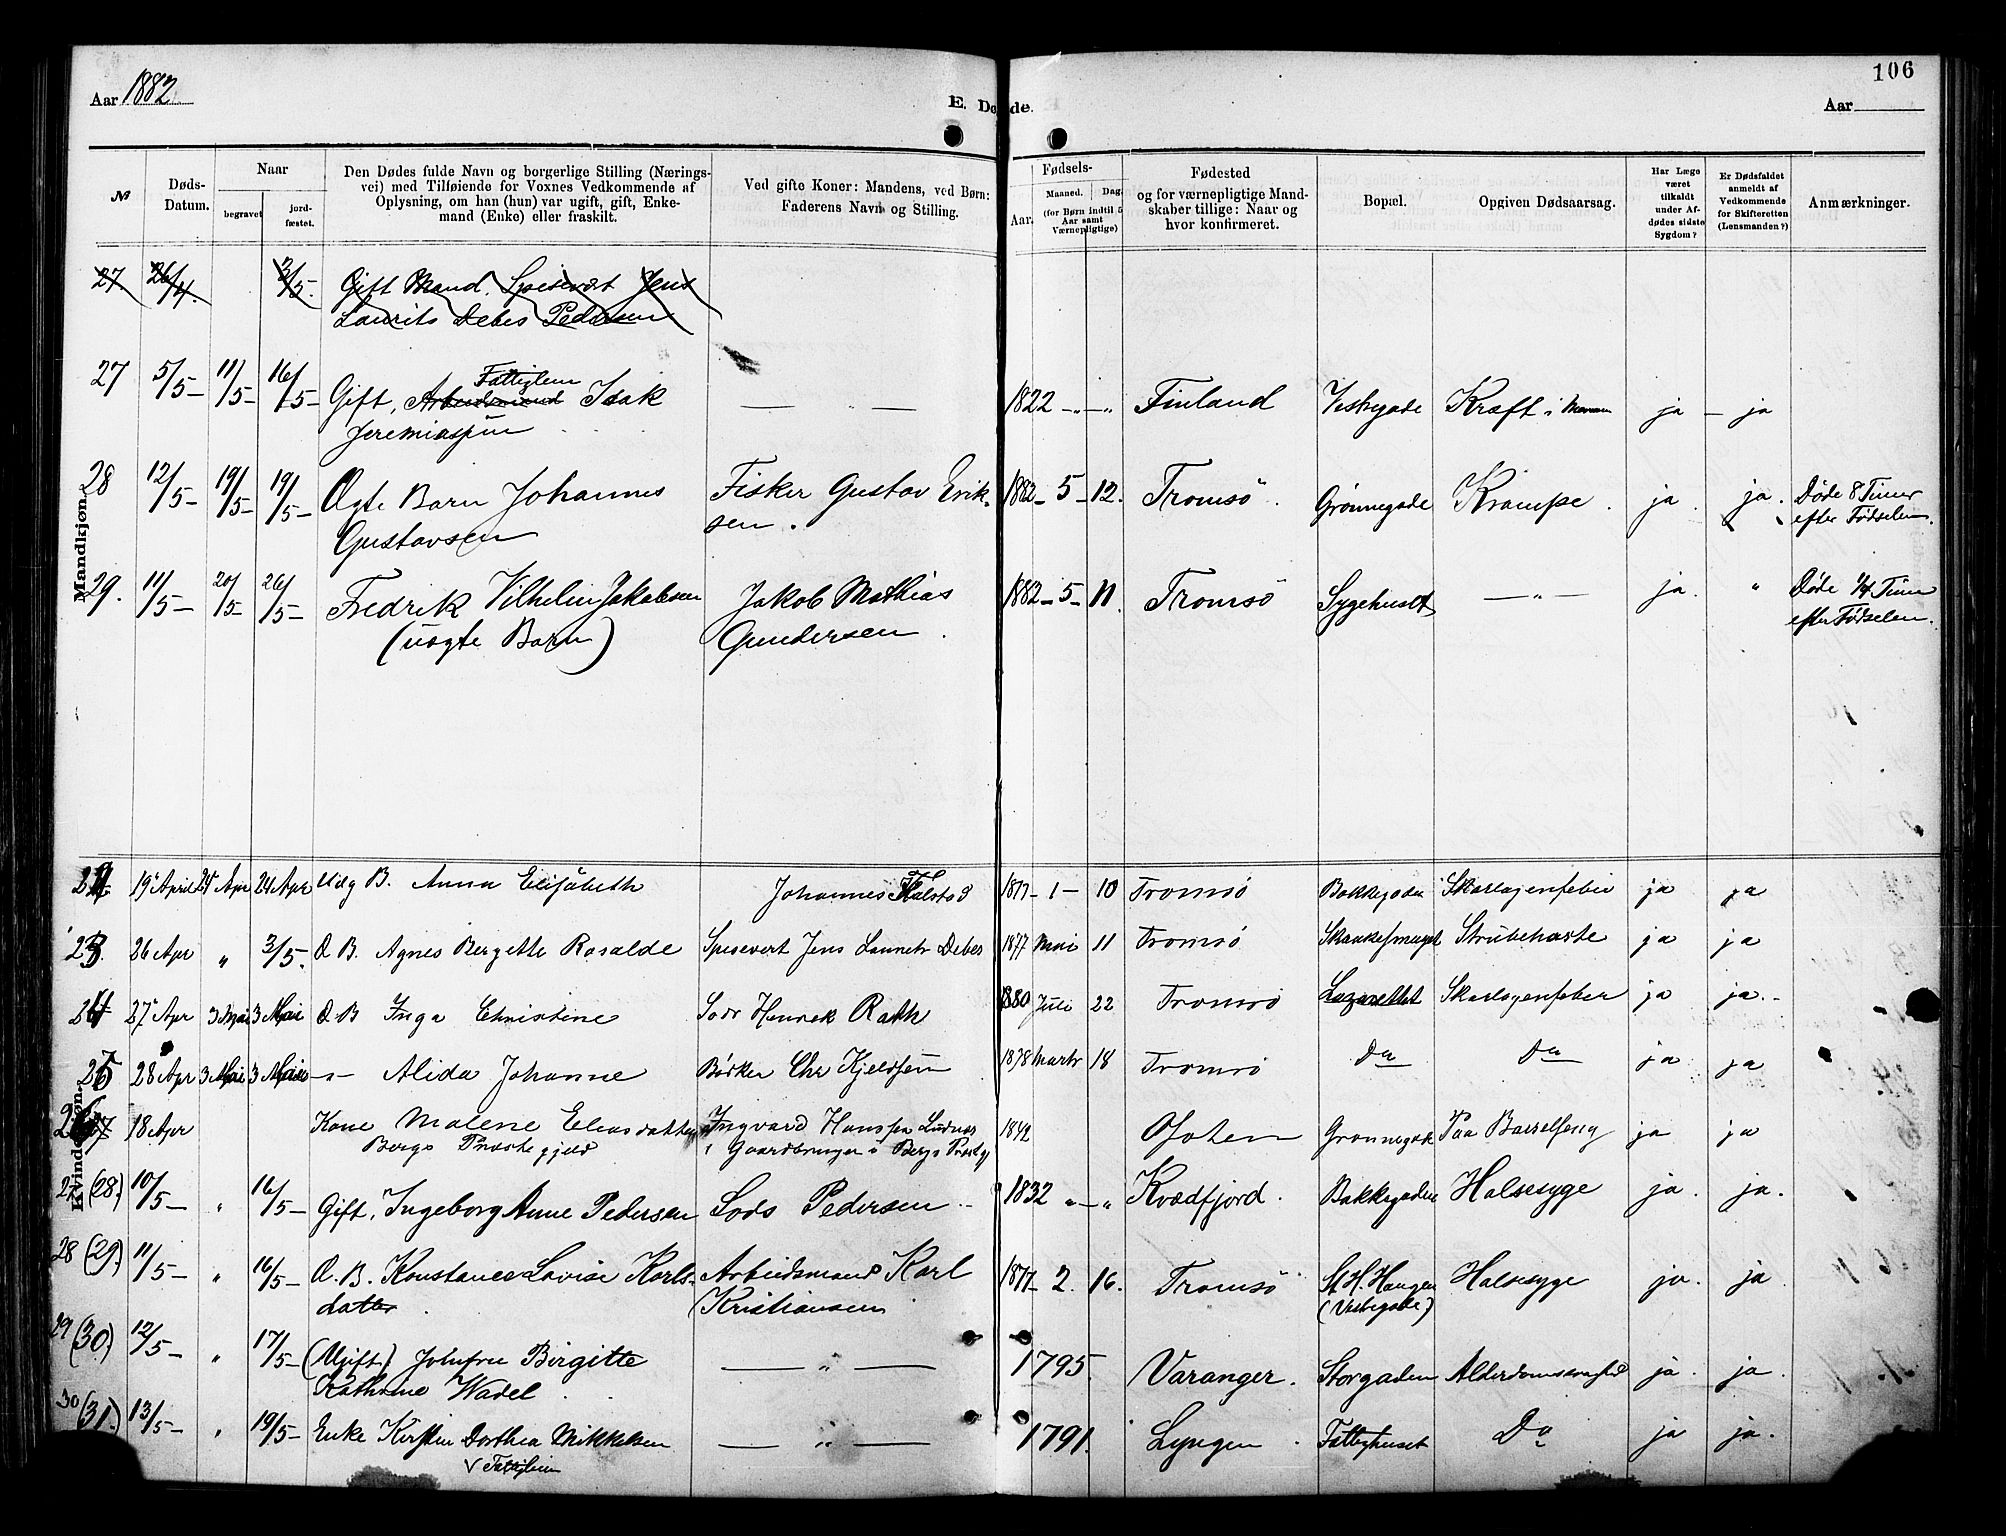 106
Aar 1882
E. Døde.
Aar
№
Døds-
Datum.
Naar
begravet
jord-
fæstet.
Den Dødes fulde Navn og borgerlige Stilling (Nærings-
vei) med Tilføiende for Voxnes Vedkommende af
Oplysning, om han (hun) var ugift, gift, Enke-
mand (Enke) eller fraskilt.
Ved gifte Koner: Mandens, ved Børn:
Faderens Navn og Stilling.
Fødsels-
Aar.
Maaned.
Dag.
(for Børn indtil 5
Aar samt
Værnepligtige)
Fødested
og for værnepligtige Mand-
skaber tillige: Naar og
hvor konfirmeret.
Bopæl.
Opgiven Dødsaarsag.
Har Læge
været
tilkaldt
under Af-
dødes sidste
Sygdom?
Er Dødsfaldet
anmeldt af
Vedkommende
for Skifteretten
(Lensmanden?)
Anmærkninger.
Mandkjøn.
27. 26/4. 3/5. Gift Mand. Spisevært Jens
Laurits Debes Pedersen
Fattiglem
27 5/5 11/5 16/5 Gift, Arbeidsmand Isak — „ — 1822 „ „ Finland Kræft i Maven ja — ja
Jeremiassen
28 12/5 19/5 19/5 Ægte Barn Johannes Fisker Gustav Erik- 1882 5 12. Tromsö. Grönnegade Krampe. ja. ja. Döde 8 Timer
Gustavsen sen. efter Födselen.
29. 11/5 20/5 26/5 Fredrik Vilhelm Jakobsen Jakob Mathias 1882 5 11. Tromsö Sygehuset — „ — ja. „ Döde 1/4 Time
(uægte Barn) Gundersen. efter Födselen.
Kvindekjøn.
19 April 24 Apr 24 Apr B. Anna Elisabeth Johannes 1877 1 10 Tromsö Bakkegaden Skarlagenfeber ja ja
23. 26 Apr „ 3/5. Æ B. Agnes Bergette Rosalde Spisevert Jens Debes 1877 Mai 11 Tromsö Strubehoste ja ja
24 27 Apr 3 Mai 3 Mai Æ B Inga Christine Lods Henrik Rath 1880 Juli 22 Tromsö Lazarettet Skarlagenfeber ja ja.
25 28 Apr 3 Mai 3 Mai — „ — Alida Johanne Bödker Chr Kjeldsen 1878 Marts 18 Tromsö Do Do ja ja
27 18 Apr Kone Malene Eliasdatter Ingvard Hanssen 1842 Ofoten Grønnegade Paa Barselseng ja ja
Bergs Præstegjeld i Bergs
27 (28.) 10/5 „ 16/5 Gift, Ingeborg Anne Pedersen Lods Pedersen 1832 „ „ Kvædfjord. Bakkegaden Halsesyge ja. ja.
28 (29.) 11/5 „ 16/5 Æ. B. Konstance Lovise Karls- Arbeidsmand Karl 1877 2. 16. Tromsö St. H. Haugen Halsesyge ja. ja
datter. Kristiansen (Vestregade)
29 (30.) 12/5 „ 17/5 (Ugift) Jomfru Birgitte — „ — 1795. Varanger. Storgaden Alderdomssvaghed ja. ja.
Kathrine Wadel.
30 (31.) 13/5 „ 19/5 Enke Kirsten Dorthea Mikkelsen — „ — 1791. Lyngen. Fattighuset Do ja ja.
Fattiglem